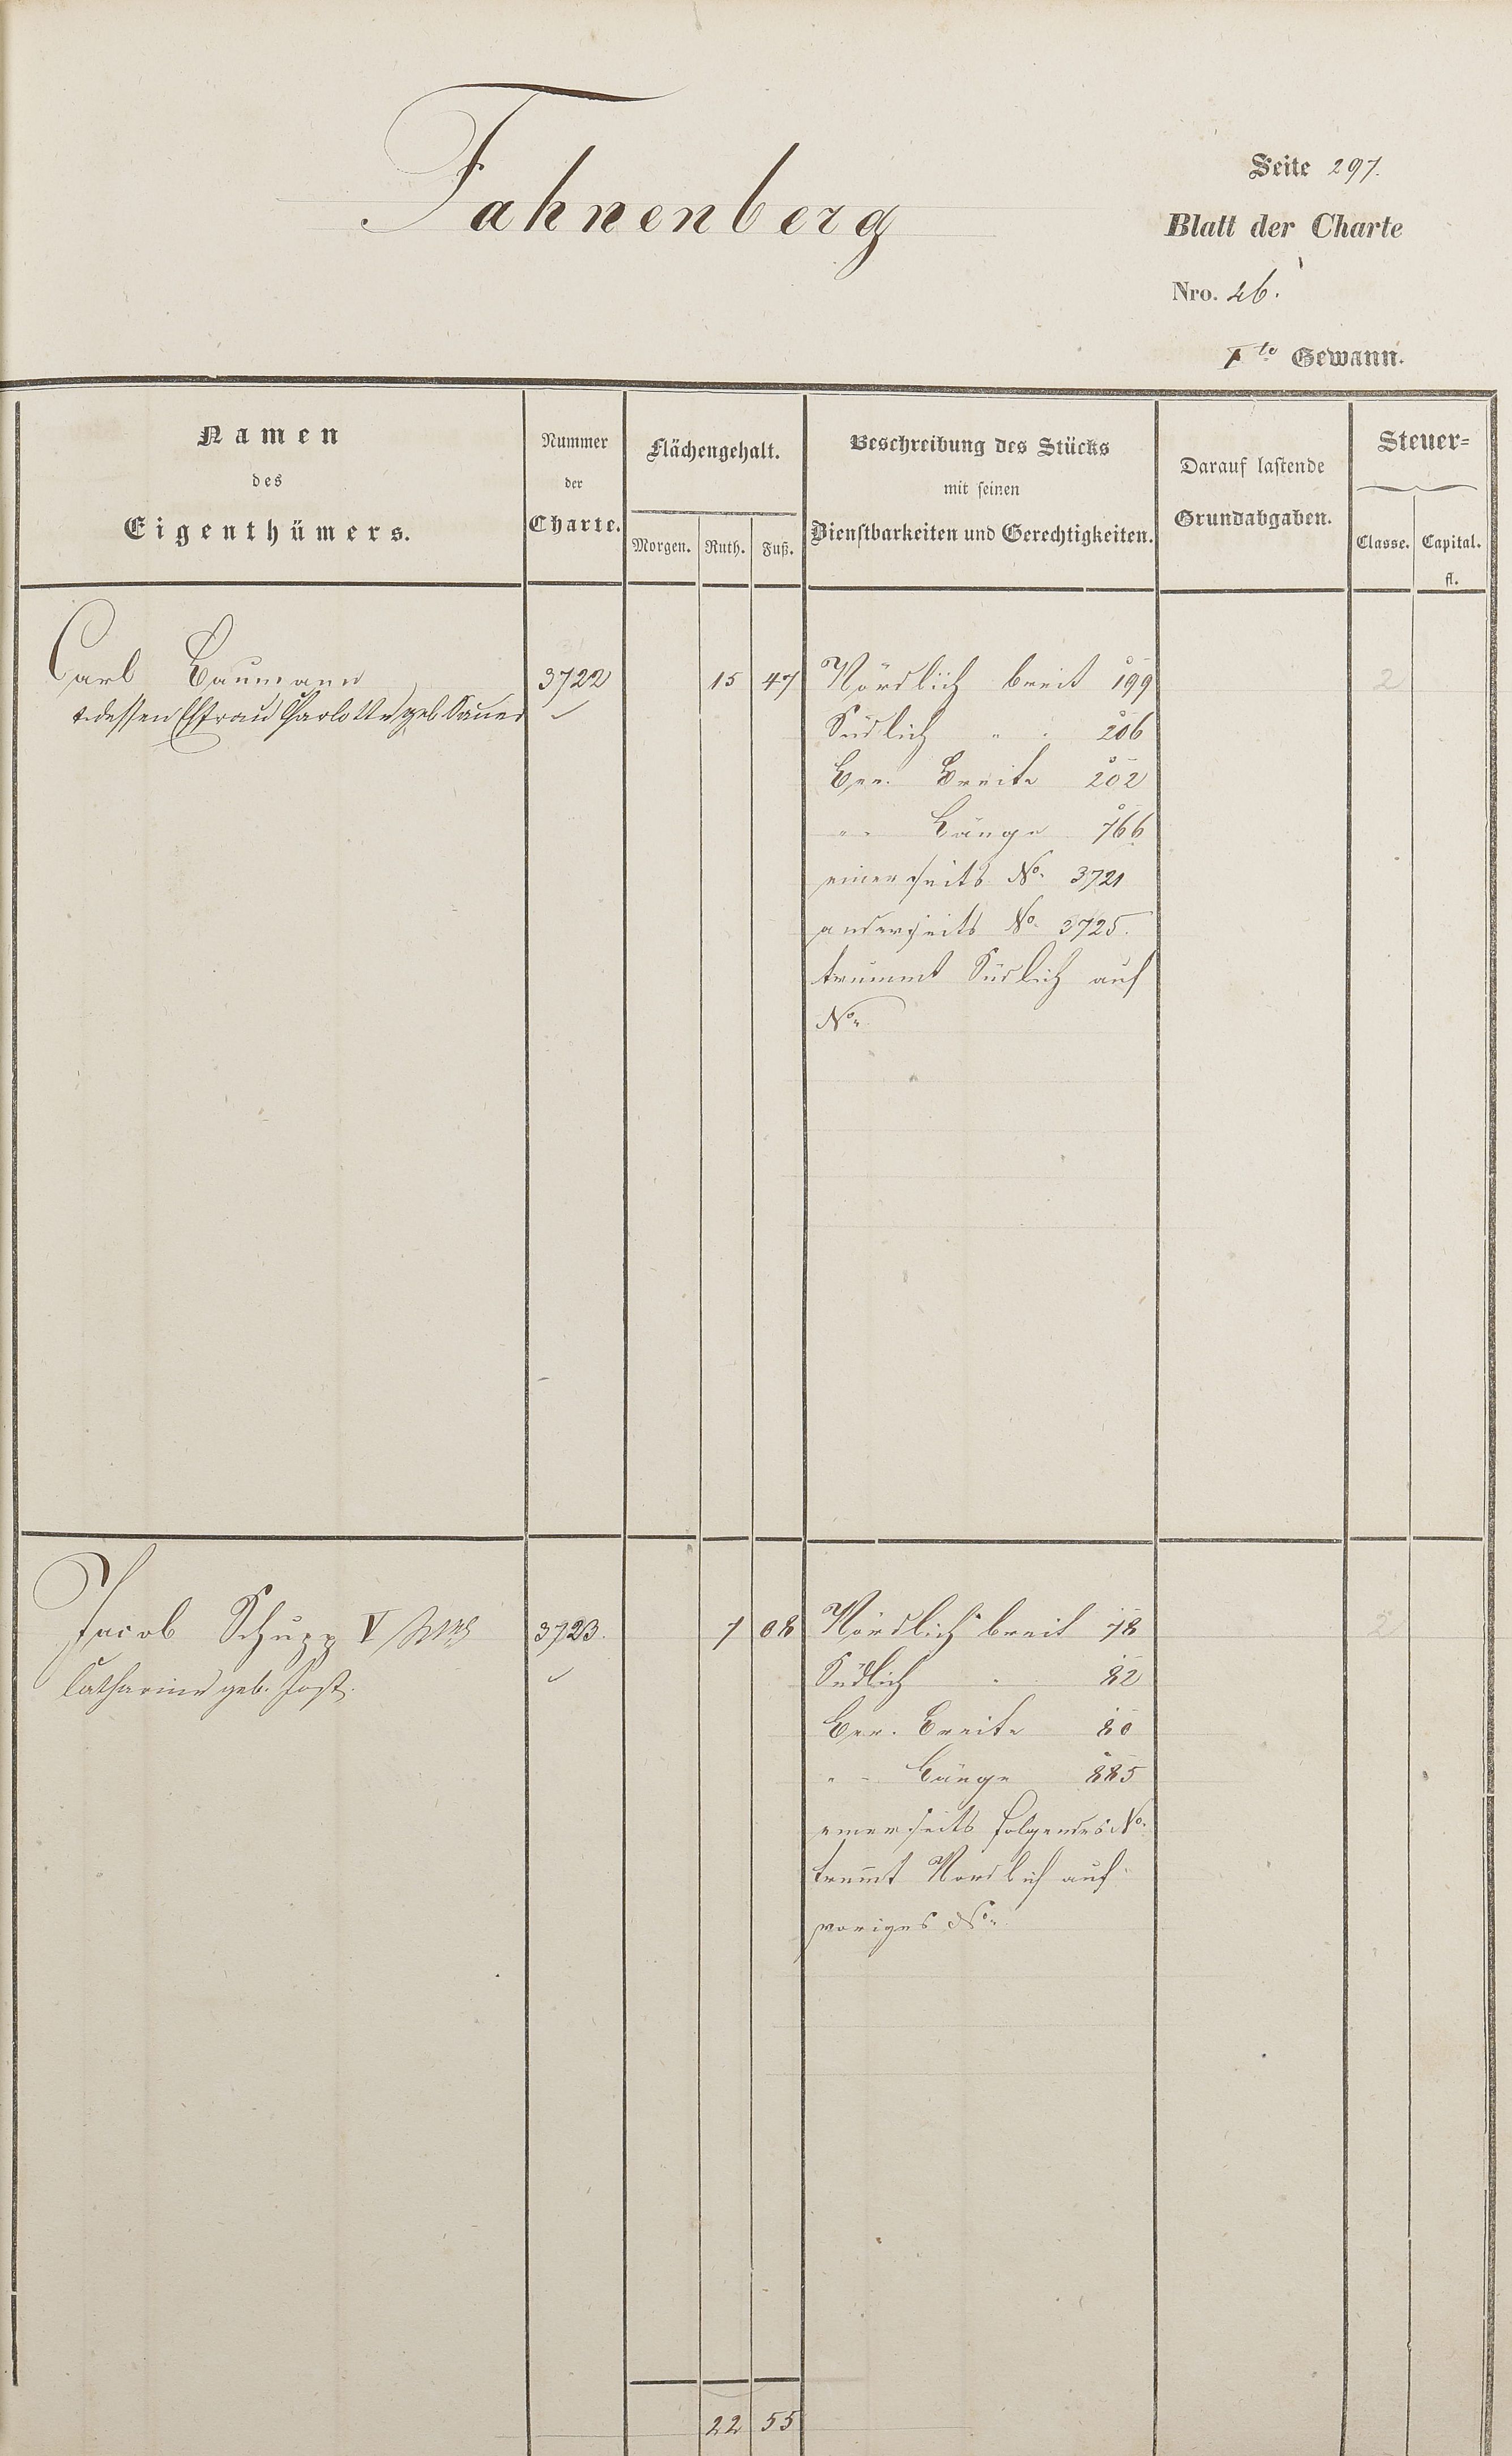 Fahnenberg
Seite 297.
Blatt der Charte
Nro. 26.
1te Gewann.
Namen
des
Eigenthümers.
Nummer
der
Charte.
Flächengehalt.
Morgen. Ruth. Fuß.
Beschreibung des Stücks
mit seinen
Dienstbarkeiten und Gerechtigkeiten.
Darauf lastende
Grundabgaben.
Steuer-
Classe. Capital.
fl.
Carl Baumann 3722 15 47 Nördlich breit 199 2
u. dessen Ehfrau Charlotte geb. Sauer
Südlich " " 206
Ber. Breite 202
" " Länge 766
einerseits No. 3721
anderseits No. 3725.
trummt Südlich auf
No.
Jacob Schupp V 3723. 7 08 Nördlich breit 78 2
Catharine geb. Jost.
Südlich " 82
Ber. Breite 80
" " Länge 885
einerseits folgendes No.
trummt Nordlich auf
voriges No.
22 55